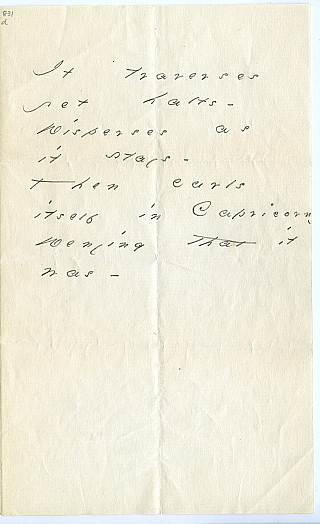 831
d
It traverses
yet halts -
Disperses as
it stays -
Then curls
itself in Capricorn,
Denying that it
was -